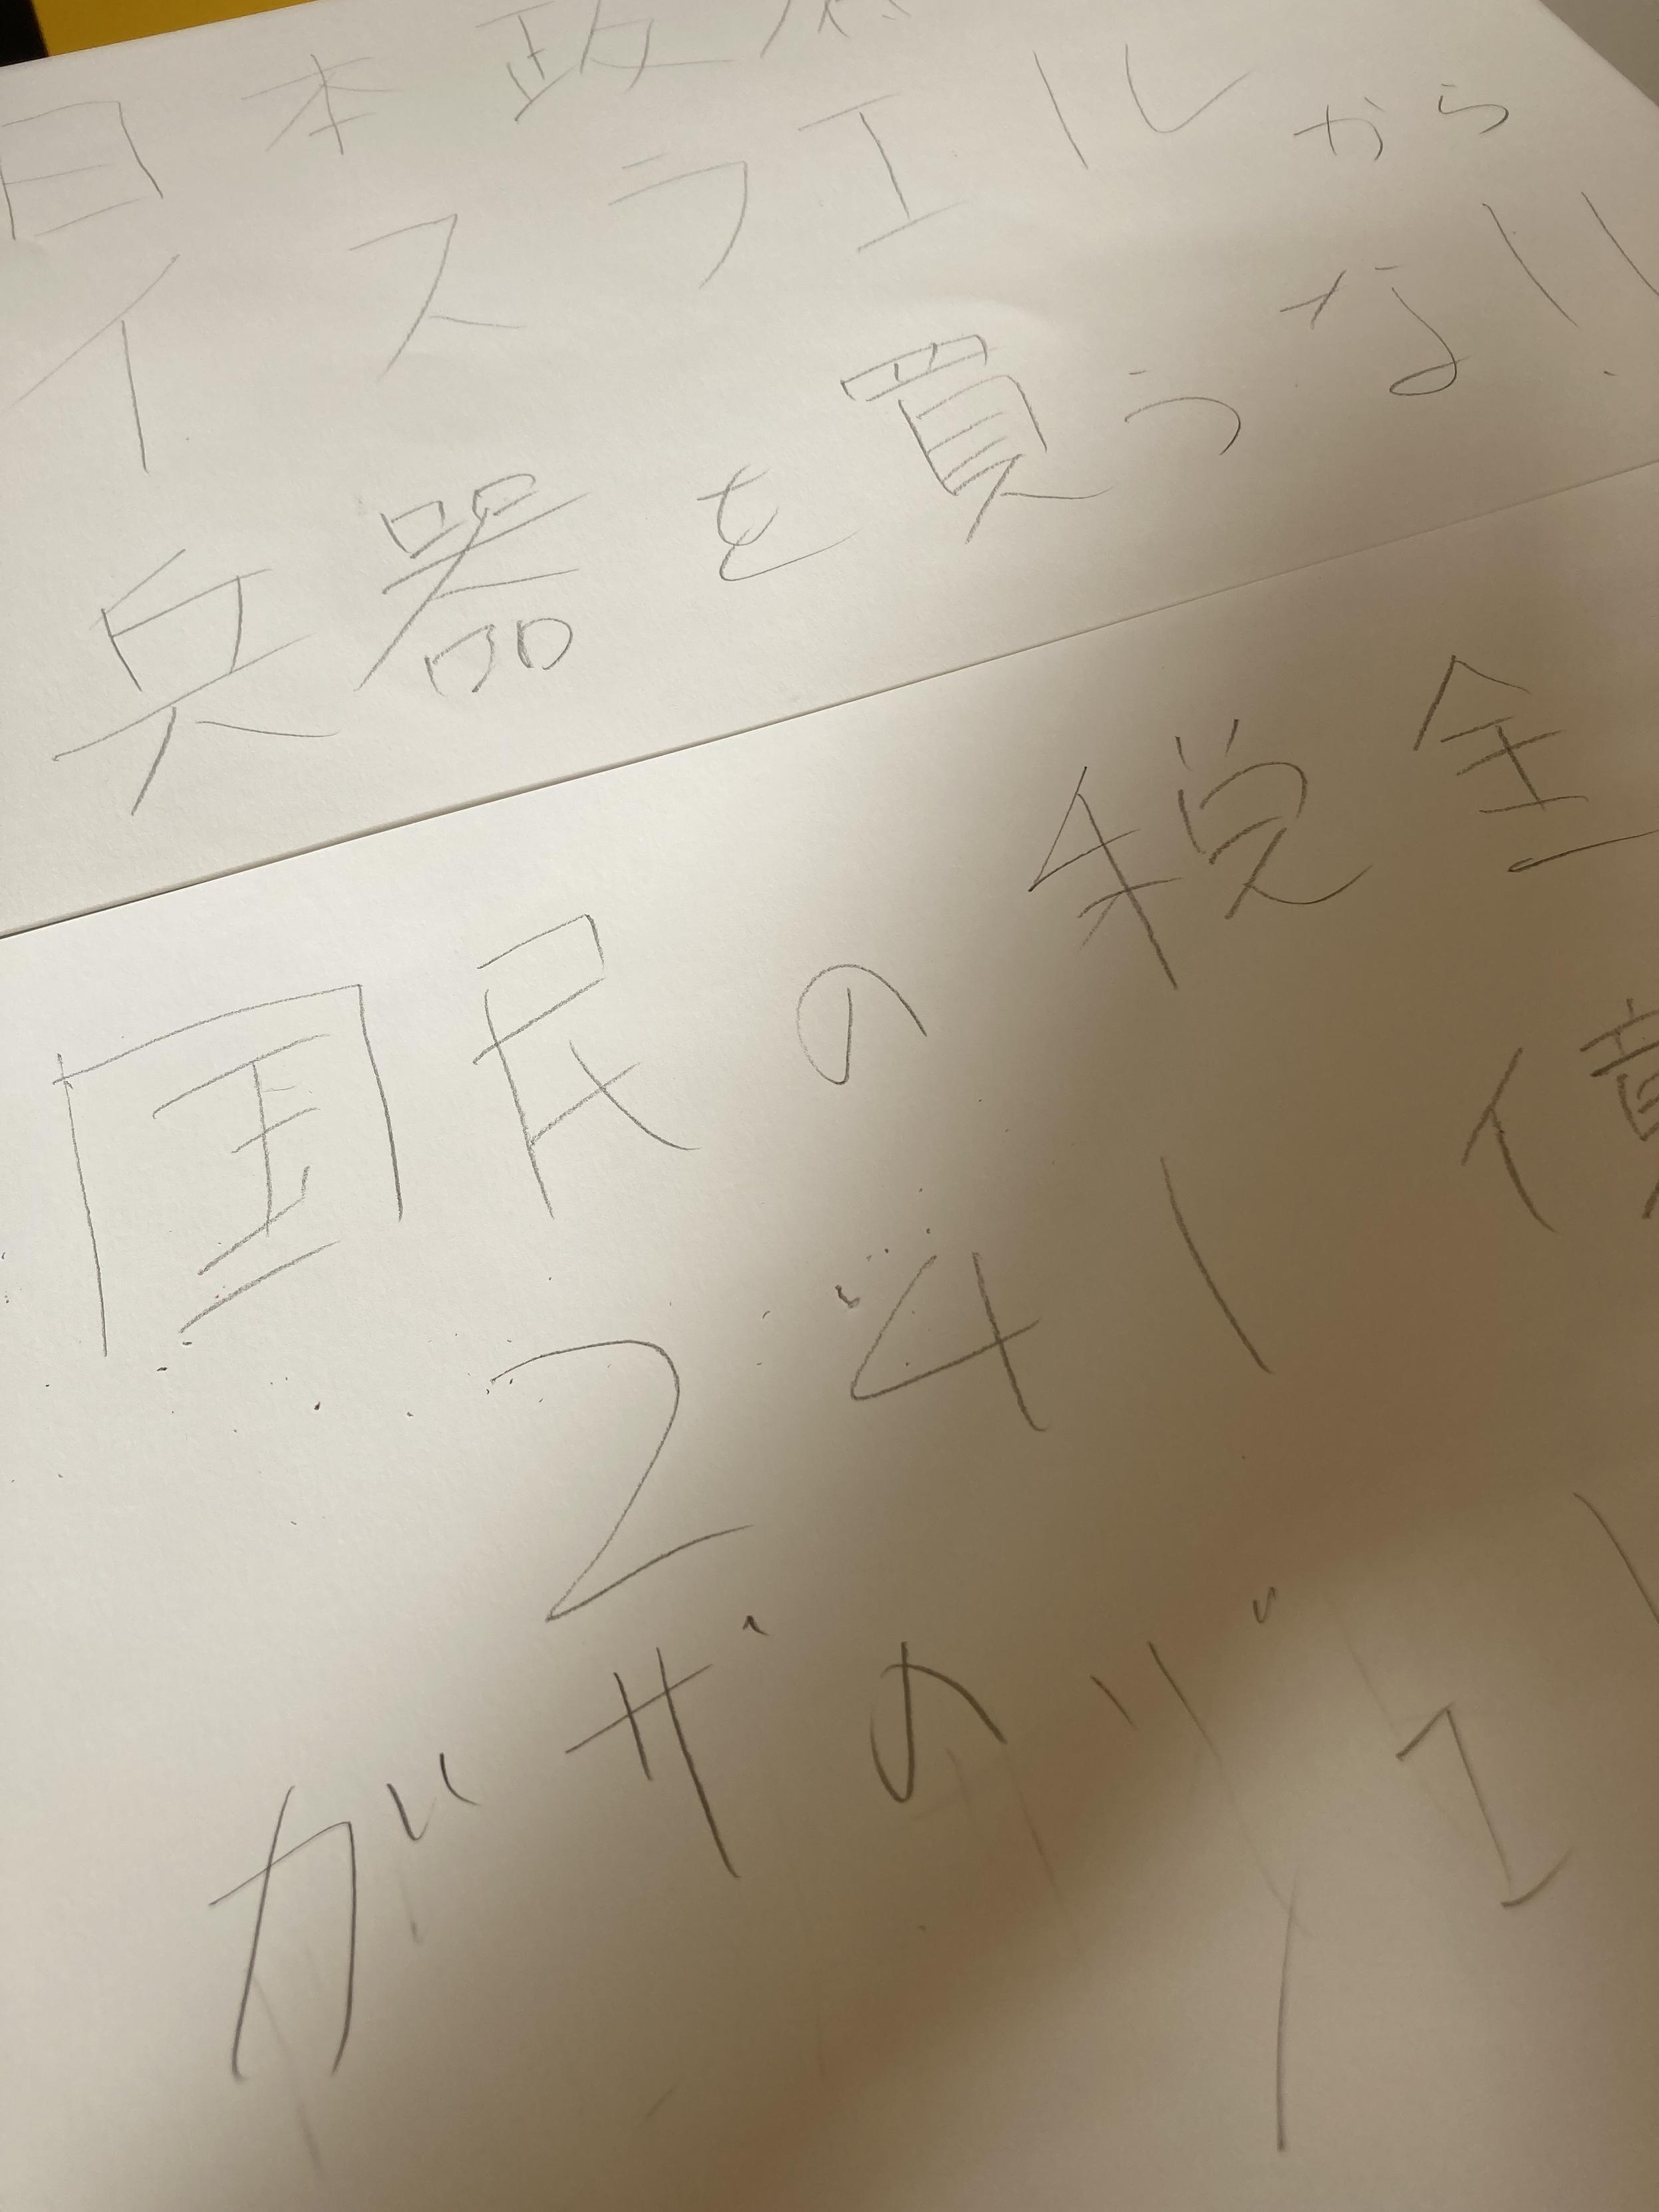 日本政府
イスラエルから
兵器を買うな!!
国民の税金
241億
ガザの